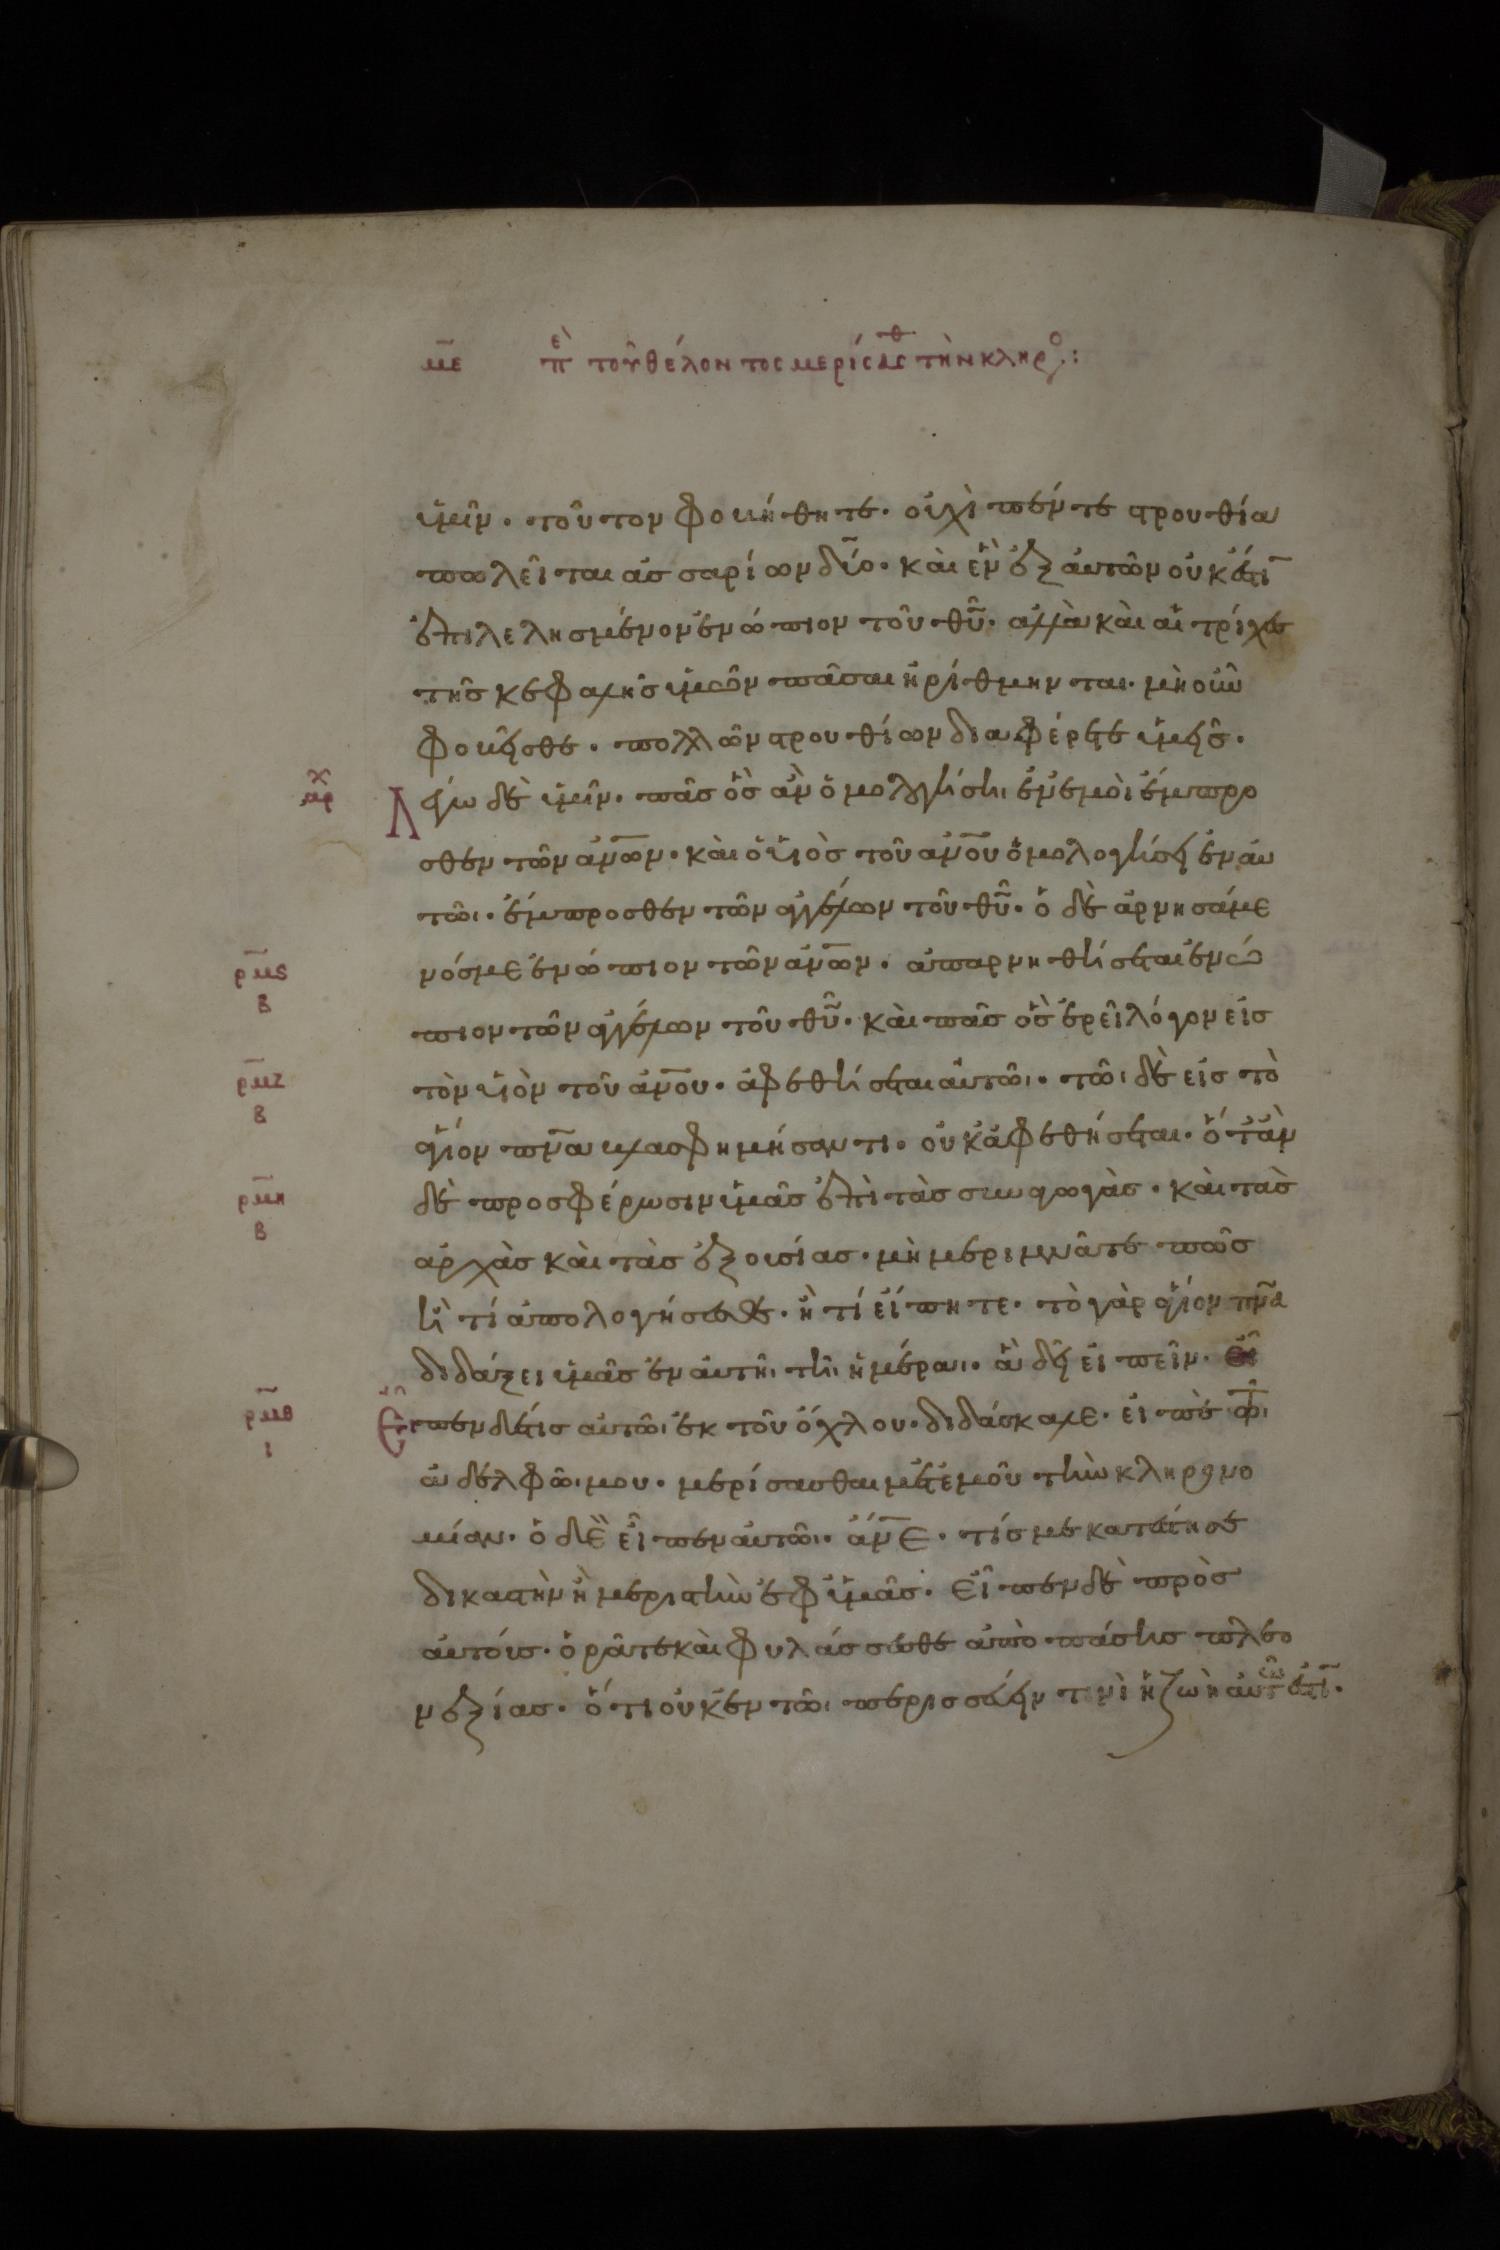 με πὲ τοῦ θέλοντος μερίσασθ τὴν κληρο:
ὑμῖν· τοῦτον φοβήθητε· οὐχὶ πέντε στρουθία
πωλεῖται ἀσσαρίων δύο· καὶ ἓν ἐξ αὐτῶν οὐκ ἔστϊ
ἐπιλελησμένον ἐνώπιον τοῦ θῦ· ἀλλὰ καὶ αἱ τρίχες
τῆς κεφαλῆς ὑμῶν πᾶσαι ἠρίθμηνται· μὴ οὖν
φοβεῖσθε· πολλῶν στρουθίων διαφέρετε ὑμεῖς·
αρχ
Λέγω δὲ ὑμῖν· πᾶς ὃς ἂν ὁμολογήσηι ἐν ἐμοὶ ἔμπρο
σθεν τῶν ἀνῶν· καὶ ὁ υἱὸς τοῦ ἀνου ὁμολογήσει ἐν αὐ
τῶι· ἔμπροσθεν τῶν ἀγγέλων τοῦ θῦ· ὁ δὲ ἀρνησάμε
ρμϛ β
νός με ἐνώπιον τῶν ἀνων· ἀπαρνηθήσεται ἐνώ
πιον τῶν ἀγγέλων τοῦ θῦ· καὶ πᾶς ὃς ἐρεῖ λόγον εἰς
ρμζ β
τὸν υἱὸν τοῦ ἀνου· ἀφεθήσεται αὐτῶι· τῶι δὲ εἰς τὸ
ἅγιον πνα βλασφημήσαντι· οὐκ ἀφεθήσεται· ὅταν
ρμη β
δὲ προσφέρωσιν ὑμᾶς ἐπὶ τὰς συναγωγὰς· καὶ τὰς
ἀρχὰς καὶ τὰς ἐξουσίας· μὴ μεριμνᾶτε πῶς
ἢ τί ἀπολογήσεσθε· ἢ τί εἴπητε· τὸ γὰρ ἅγιον πνα
διδάξει ὑμᾶς ἐν αὐτῆι τῆι ἡμέραι· ἃ δεῖ εἰπεῖν·
ρμθ ι
Εἶπεν δέ τις αὐτῶι ἐκ τοῦ ὄχλου· διδάσκαλε· εἰπὲ τῶι
ἀδελφῶι μου· μερίσασθαι μετ ἐμοῦ τὴν κληρονο
μίαν· ὁ δὲ εἶπεν αὐτῶι· ἄνε· τίς με κατέστησε
δικαστὴν ἢ μεριστὴν ἐφ ὑμᾶς· εἶπεν δὲ πρὸς
αὐτούς· ὁρᾶτε καὶ φυλάσσεσθε ἀπὸ πάσης πλεο
νεξίας· ὅτι οὐκ ἐν τῶι περισσεύειν τινὶ ἡ ζωὴ αὐτῶ ἐστϊ·